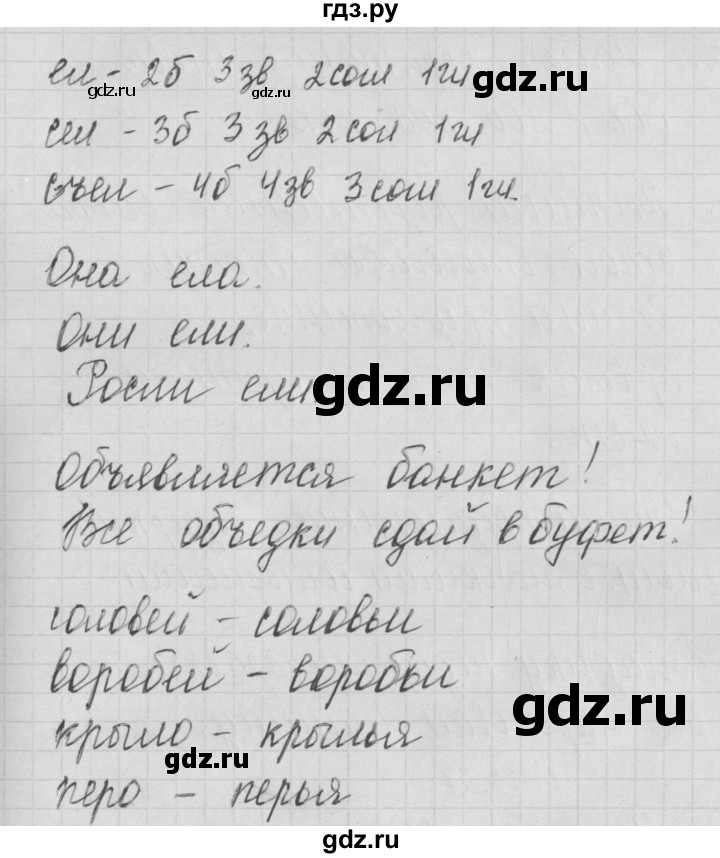 гдз.ру
ел - 2б 3 зв 2 согл 1 гл
gdz.ru gdz.ru gdz.ru
сел - 3б 3 зв 2 сог 1 гл
съел - 4б 4 зв 3 согл 1 гл.
Она ела.
Они ели.
Росли ели
gdz.ru
Объявляется банкет!
Все объедки сдай в буфет!
соловей - соловьи
воробей - воробьи
gdz.ru
крыло - крылья
gdz.ru
перо - перья
gdz.ru